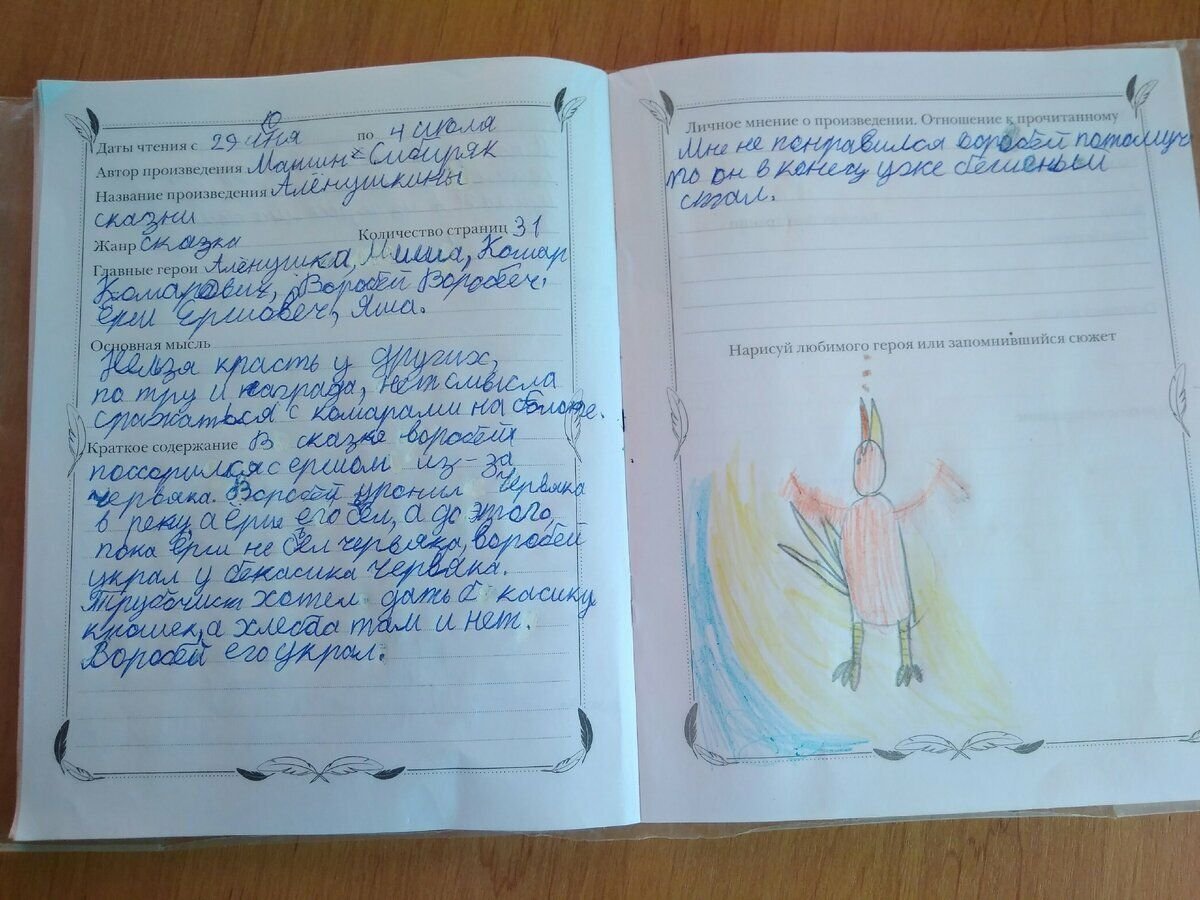 Даты чтения с 29 июня по 4 июля
Автор произведения Мамин-Сибиряк
Название произведения Алёнушкины
сказки
Жанр сказка Количество страниц 31
Главные герои Алёнушка, Миша, Комар
Комарович, Воробей Воробеч.
ёрш Ершовеч, Яша.
Основная мысль
Нельзя красть у других,
по тру и награда, нет смысла
сражаться с комарами на болоте.
Краткое содержание В сказке воробей
поссорился с ершом из-за
червяка. Воробей уронил червяка
в реку а ёрш его съел, а до этого,
пока ёрш не съел червяка, воробей
украл у бекасика червяка.
Трубочист хотел дать б касику
крошек, а хлеба там и нет.
Воробей его украл.
Личное мнение о произведении. Отношение к прочитанному
Мне не понравился воробей потомуч
то он в конец уже бешеный
стал.
Нарисуй любимого героя или запомнившийся сюжет